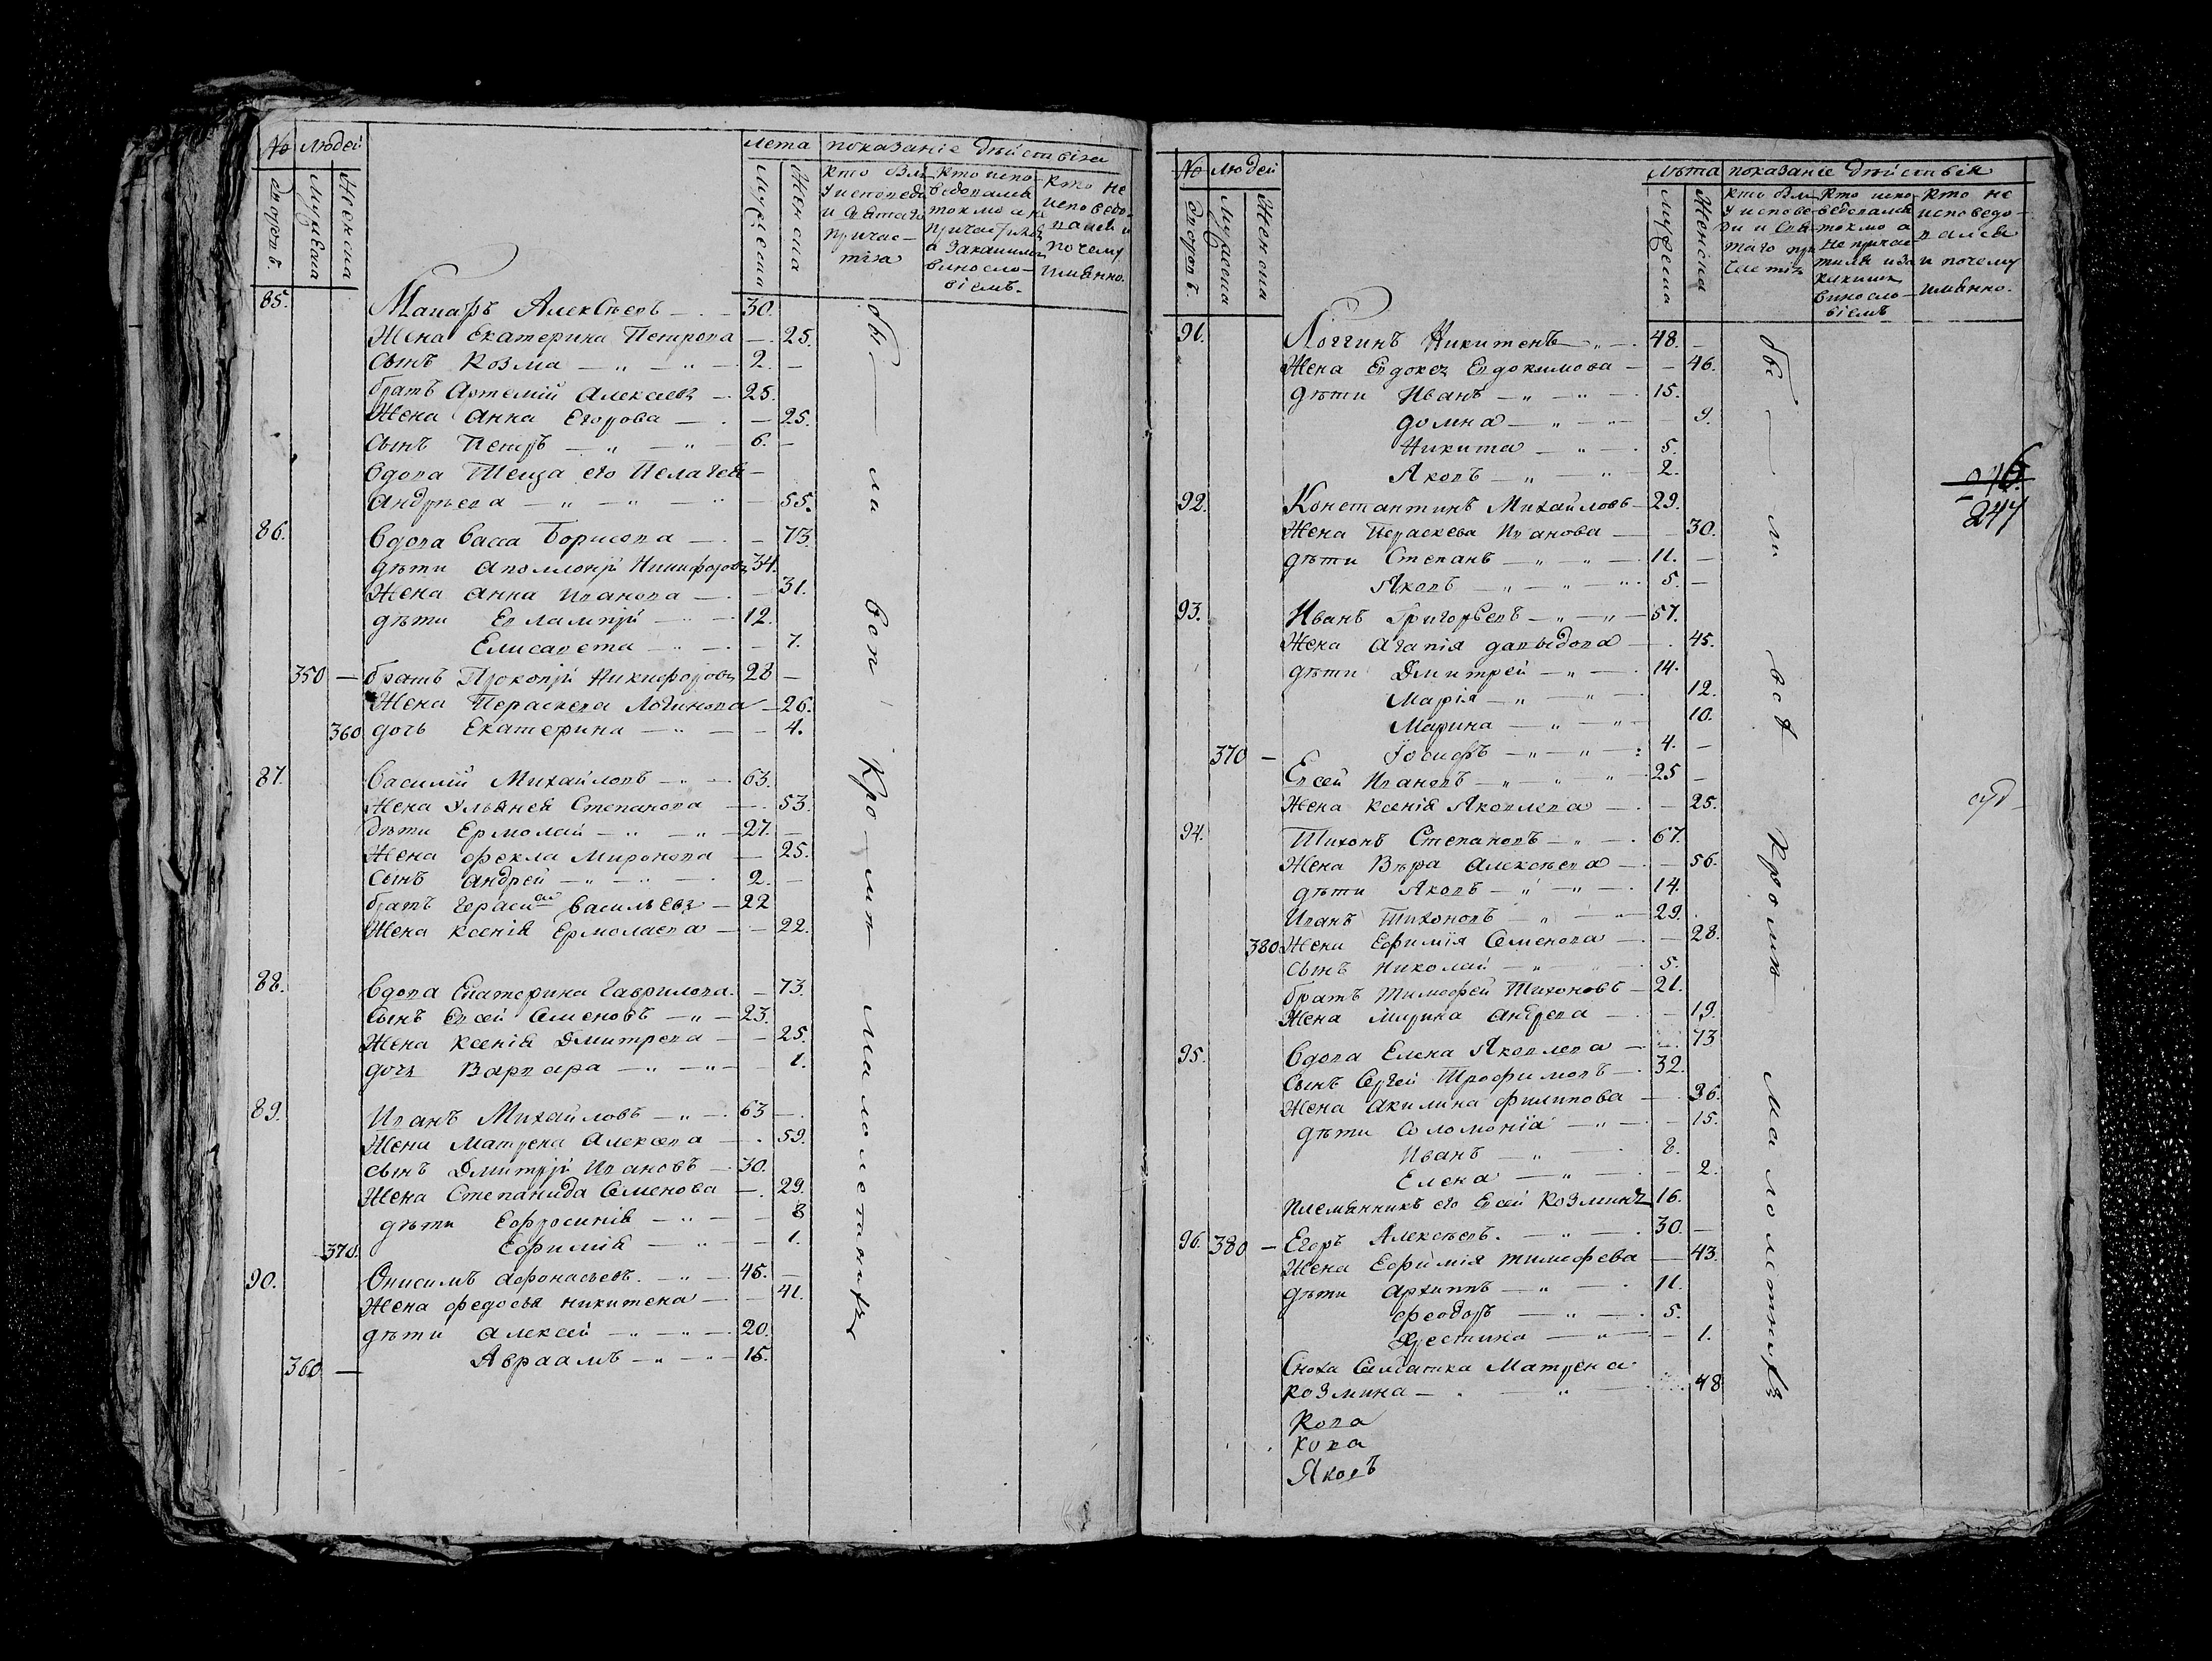 № людей лета показаніе дѣйствіѧ
дворовъ. Мужеска Женска Мужеска Женска
кто был у исповеди и святаго причастія
кто исповедовалсѧ токмо а не причастился а за какимъ винословіемъ.
кто не исповедовался и почему имянно.
85. Макаръ Алексѣевъ 30.
Жена Екатерина Петрова 25.
Сынъ Козма 2.
братъ Артемій Алексеевъ 25.
Жена Анна Егорова 25.
Сынъ Петръ 6.
Вдова Теща его Пелагея
Андрѣева 55.
86. Вдова Васса Борисова 73.
дѣти Аполлоній Никифоровъ 34.
Жена Анна Иванова 31.
дѣти Евлампій 12.
Елисавета 7.
350 братъ Прокопій Никифоровъ 28
Жена Параскева Логинова 26.
360 дочь Екатерина 4.
87. Василій Михайловъ 63.
Жена Ульянея Степанова 53.
дѣти Ермолай 27.
Жена Фекла Миронова 25.
Сынъ Андрей 2.
братъ Герасим Васильевъ 22
Жена Ксенія Ермолаева 22.
88. Вдова Екатерина Гаврилова. 73.
Сынъ Евсей Семеновъ 23.
Жена Ксенія Дмитрева 25.
дочь Варвара 1.
89. Иванъ Михайловъ 63
Жена Матрена Алексева 59.
сынъ Дмитрій Ивановъ 30.
Жена Степанида Семенова 29.
дѣти Ефросинія 8
370. Ефимія 1.
90. Онисимъ Афонасьевъ. 45.
Жена Федосья Никитена 41.
дѣти Алексей 20.
360 Авраамъ 15.
бы ли всѣ Кромѣ малолетнихъ
№ людей лѣта показаніе дѣйствія
дворовъ. Мужеска Женска Мужеска Женска
кто был у исповеди и святаго причастія
кто исповедовался токмо а не причастился и за какимъ винословіемъ
кто не исповедовался и почему имянно.
91. Логгинъ Никитенъ 48.
Жена Евдокея Евдокимова 46.
дѣти Иванъ 15.
домна 9.
Никита 5.
Яковъ 2.
92. Константинъ Михайловъ 29.
Жена Параскева Иванова 30.
дѣти Степанъ 11.
Яковъ 5.
93. Иванъ Григорьевъ 57.
Жена Агапія давыдова 45.
дѣти Дмитрей 14.
Марія 12.
Марина 10.
370 Іосифъ 4.
Евсей Ивановъ 25
Жена Ксенія Яковлева 25.
94. Тихонъ Степановъ 67.
Жена Вѣра Алексѣева 56.
дѣти Яковъ 14.
Иванъ Тихоновъ 29.
380 Жена Ефимія Семенова 28.
сынъ Николай 5.
братъ Тимофей Тихоновъ 21.
Жена Марина Андрева 19.
95. Вдова Елена Яковлева 73
Сынъ Сергей Трофимовъ 32.
Жена Акилина Филипова 36.
дѣти Соломонія 15.
Иванъ 8.
Елена 2.
племянникъ его Евсей Козминъ 16.
96. 380 Егоръ Алексѣевъ. 30.
Жена Ефимія Тимофева 43.
дѣти Архиппъ 11.
Феодоръ 5.
Христина 1.
Сноха Салдатка Матрена
Козмина 48
Кова
Кова
Яковъ
бы ли всѣ Кромѣ малолѣтнихъ
247